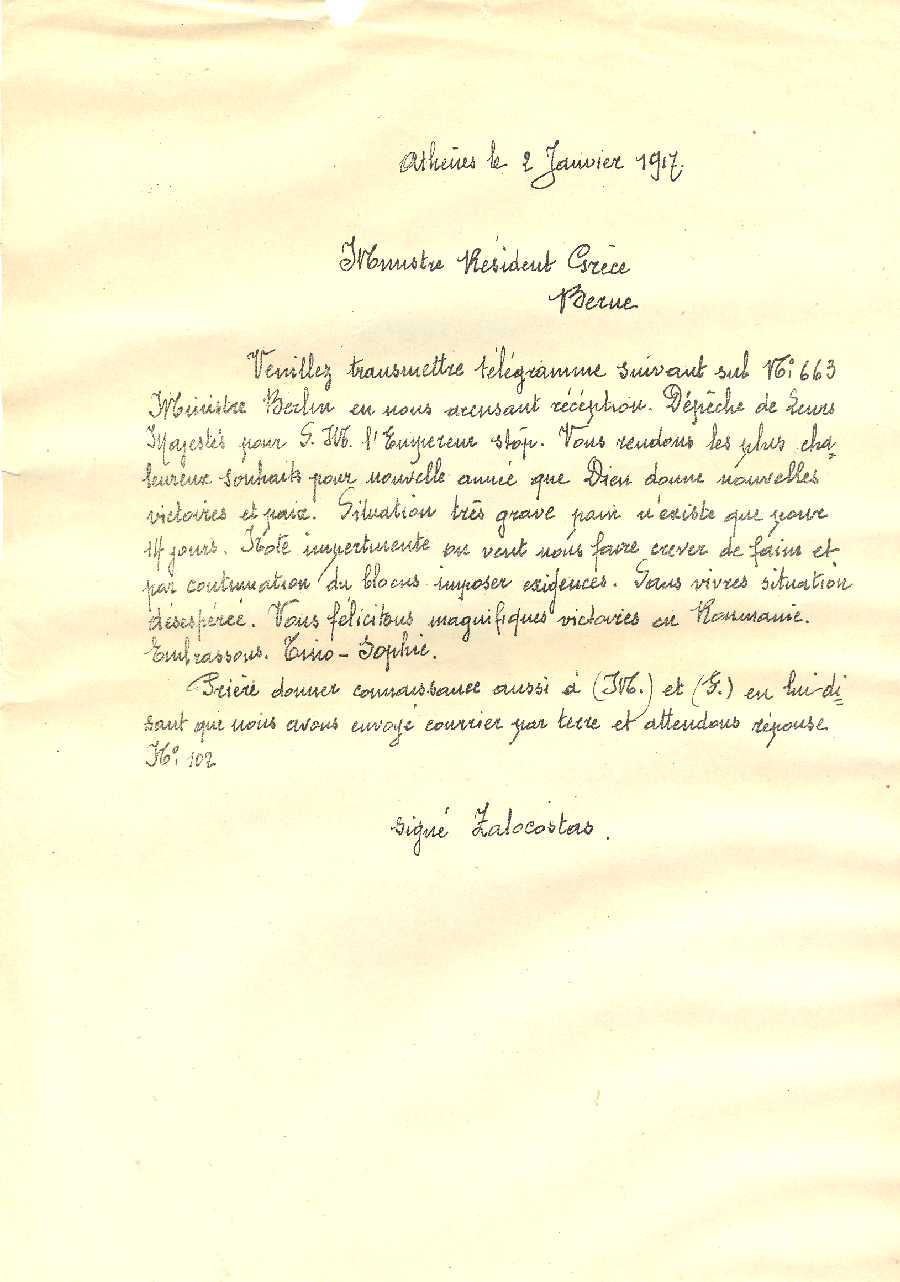 Athènes le 2 Janvier 1917.
Ministre Résident Grèce
Berne
Veuillez transmettre télégramme suivant sub No: 663
Ministre Berlin en nous accusant récéption. Dépêche de Leurs
Majestés pour S. M. l'Empereur stop. Vous rendons les plus cha=
leureux souhaits pour nouvelle année que Dieu donne nouvelles
victoires et paix. Situation très grave pain n'existe que pour
14 jours. Note impertinente on veut nous faire crever de faim et
par continuation du blocus imposer exigences. Sans vivres situation
désespérée. Vous félicitons magnifiques victoires en Roumanie.
Embrassons. Tino - Sophie.
Prière donner connaissance aussi à (M.) et (G.) en lui di=
sant que nous avons envoyé courrier par terre et attendons réponse
No: 102
signé Zalocostas.